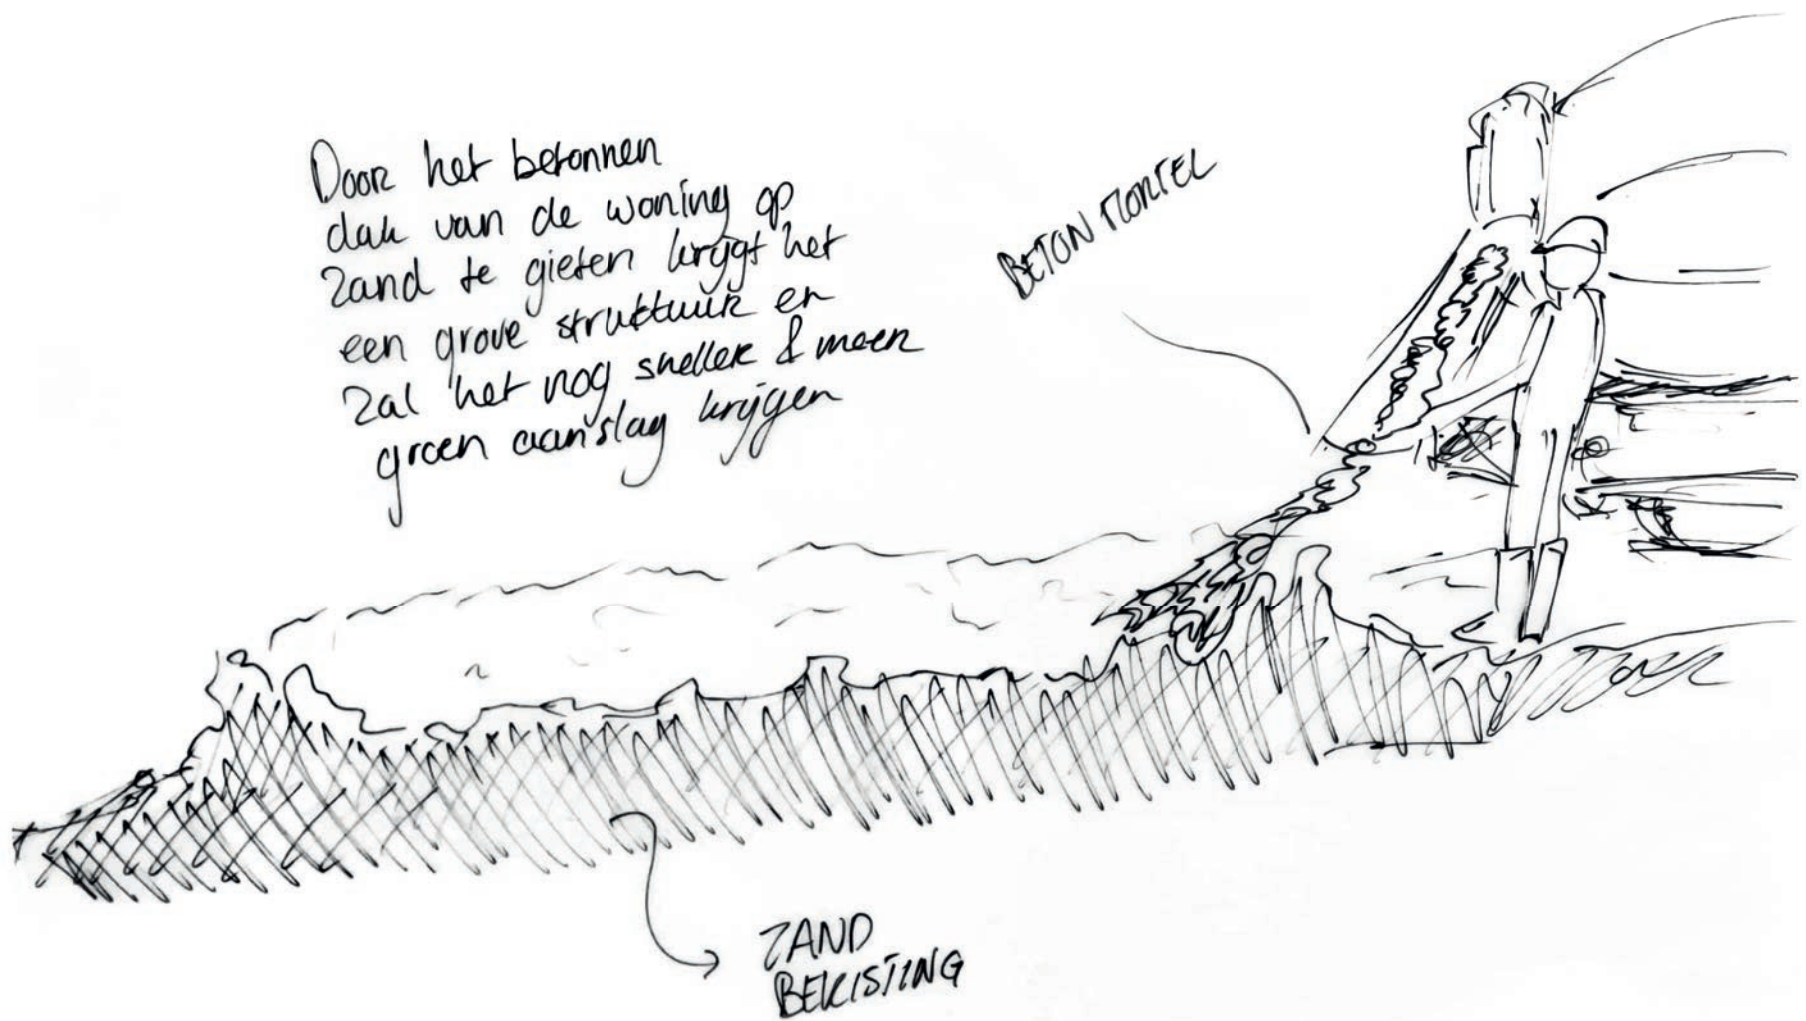 Door het betonnen
dak van de woning op
zand te gieten krijgt het
een grove struktuur en
zal het nog sneller & meer
groen aanslag krijgen
BETON MORTEL
ZAND
BEKISTING